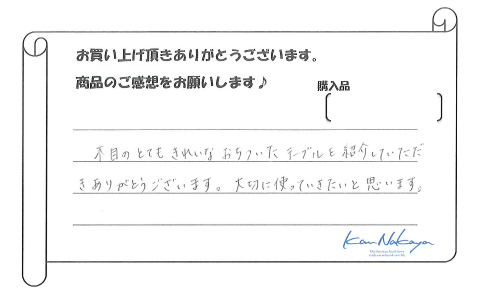 お買い上げ頂きありがとうございます。
商品のご感想をお願いします♪
購入品
木目のとてもきれいなおちついたテーブルを紹介していただ
きありがとうございます。大切に使っていきたいと思います。
Kan Nakaya